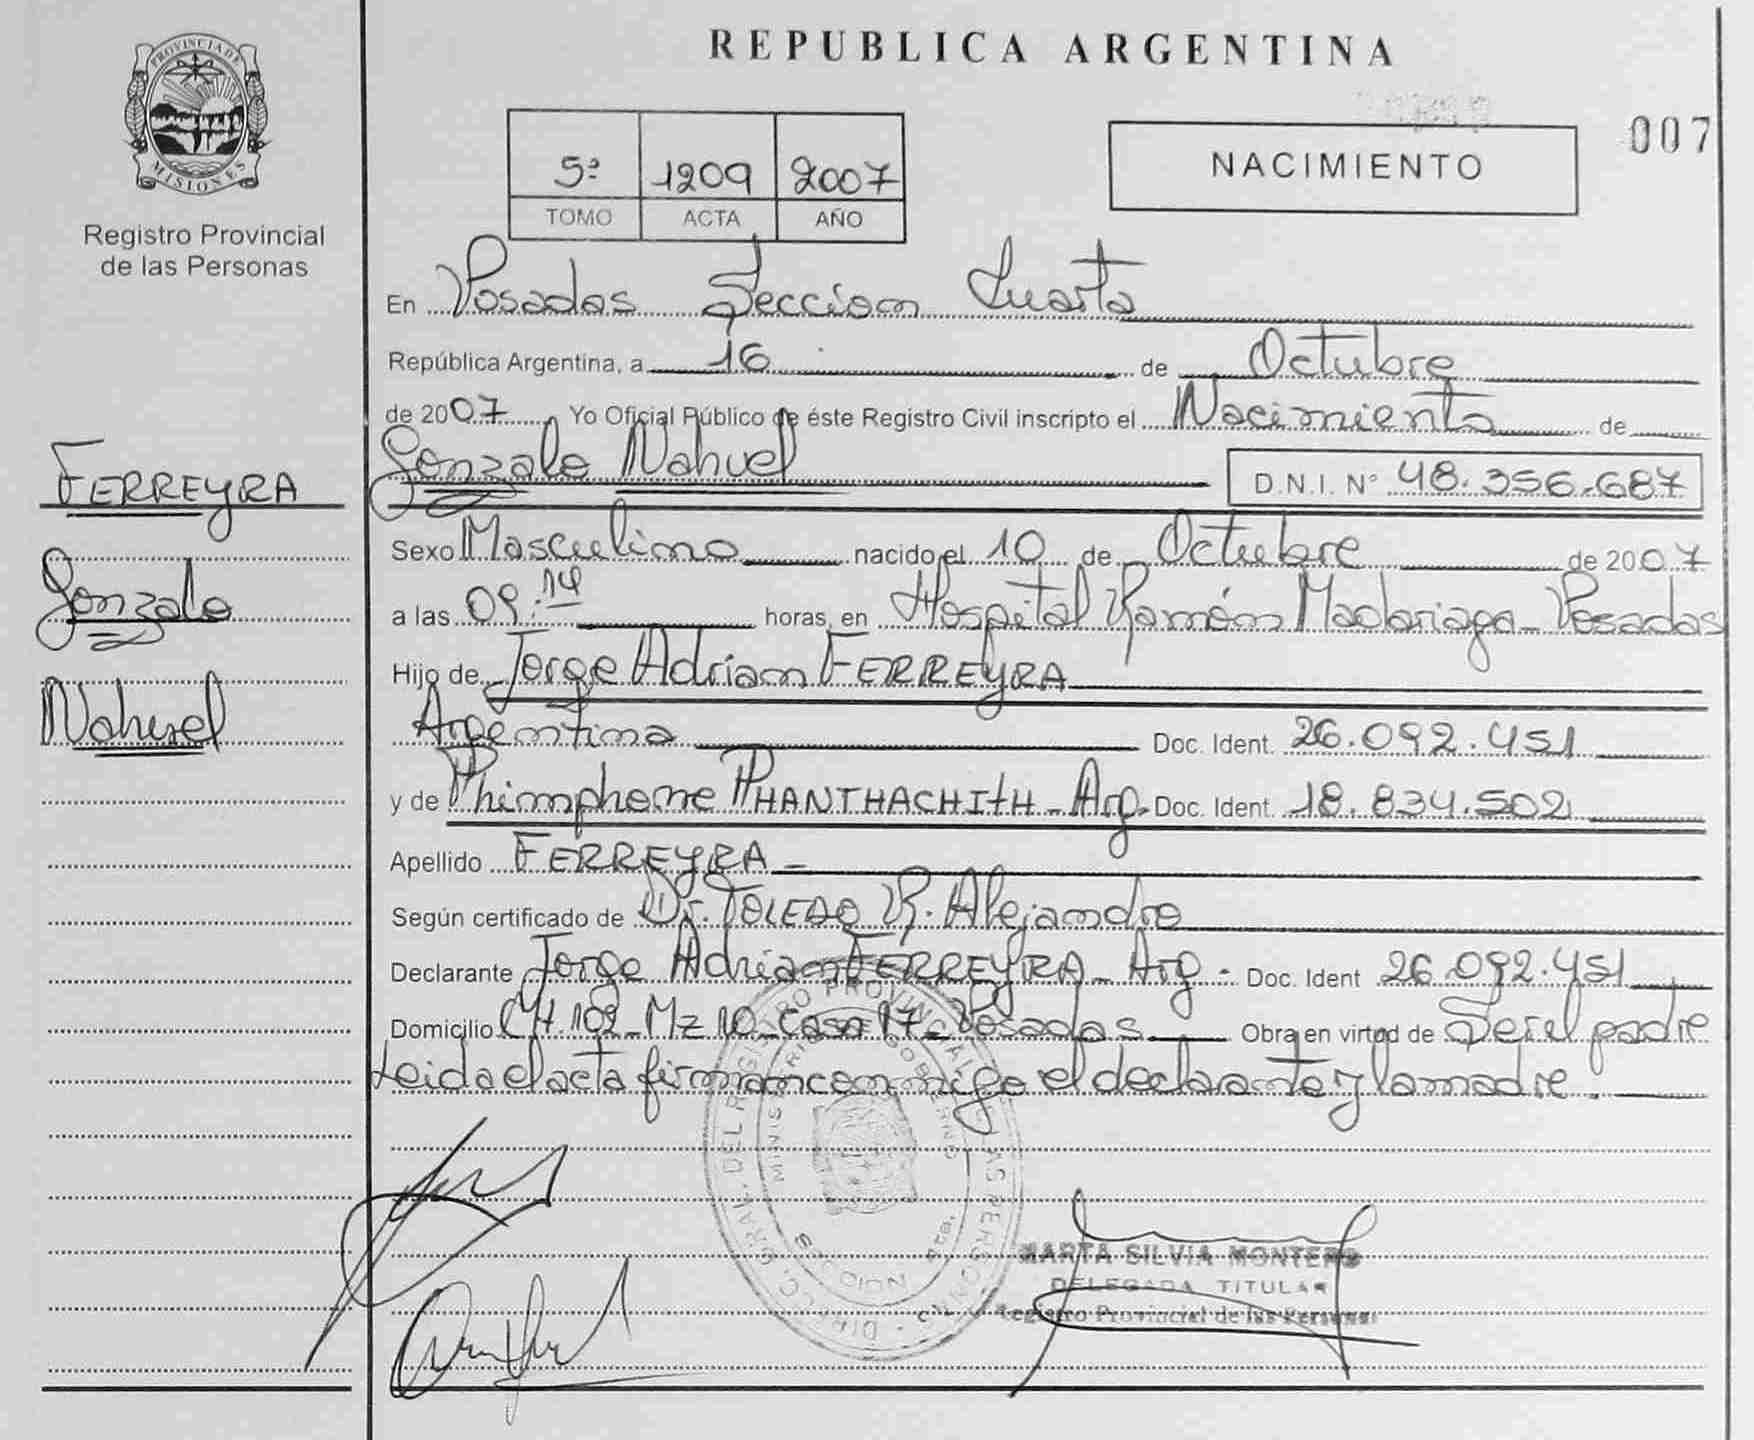 PROVINCIA DE
MISIONES
Registro Provincial
de las Personas
FERREYRA
Gonzalo
Nahuel
REPUBLICA ARGENTINA
5ª 1209 2007
TOMO ACTA AÑO
NACIMIENTO
007
En Posadas Seccion Cuarta
República Argentina, a 16 de Octubre
de 2007 Yo Oficial Público de éste Registro Civil inscripto el Nacimiento de
Gonzalo Nahuel D.N.I. Nº 48.356.687
Sexo Masculino nacido el 10 de Octubre de 2007
a las 09:14 horas, en Hospital Ramón Madariaga - Posadas
Hijo de Jorge Adrian FERREYRA
Argentina Doc. Ident. 26.092.451
y de Phimphone PHANTHACHITH - Arg. Doc. Ident. 18.834.502
Apellido FERREYRA -
Según certificado de Dr. TOLEDO R. Alejandro
Declarante Jorge Adrian FERREYRA - Arg - Doc. Ident 26.092.451
Domicilio CH. 109 - Mz 10 - Casa 17 - Posadas Obra en virtud de Ser el padre
Leida el acta firman conmigo el declarante y la madre.
MARTA SILVIA MONTERO
DELEGADA TITULAR
Registro Provincial de las Personas